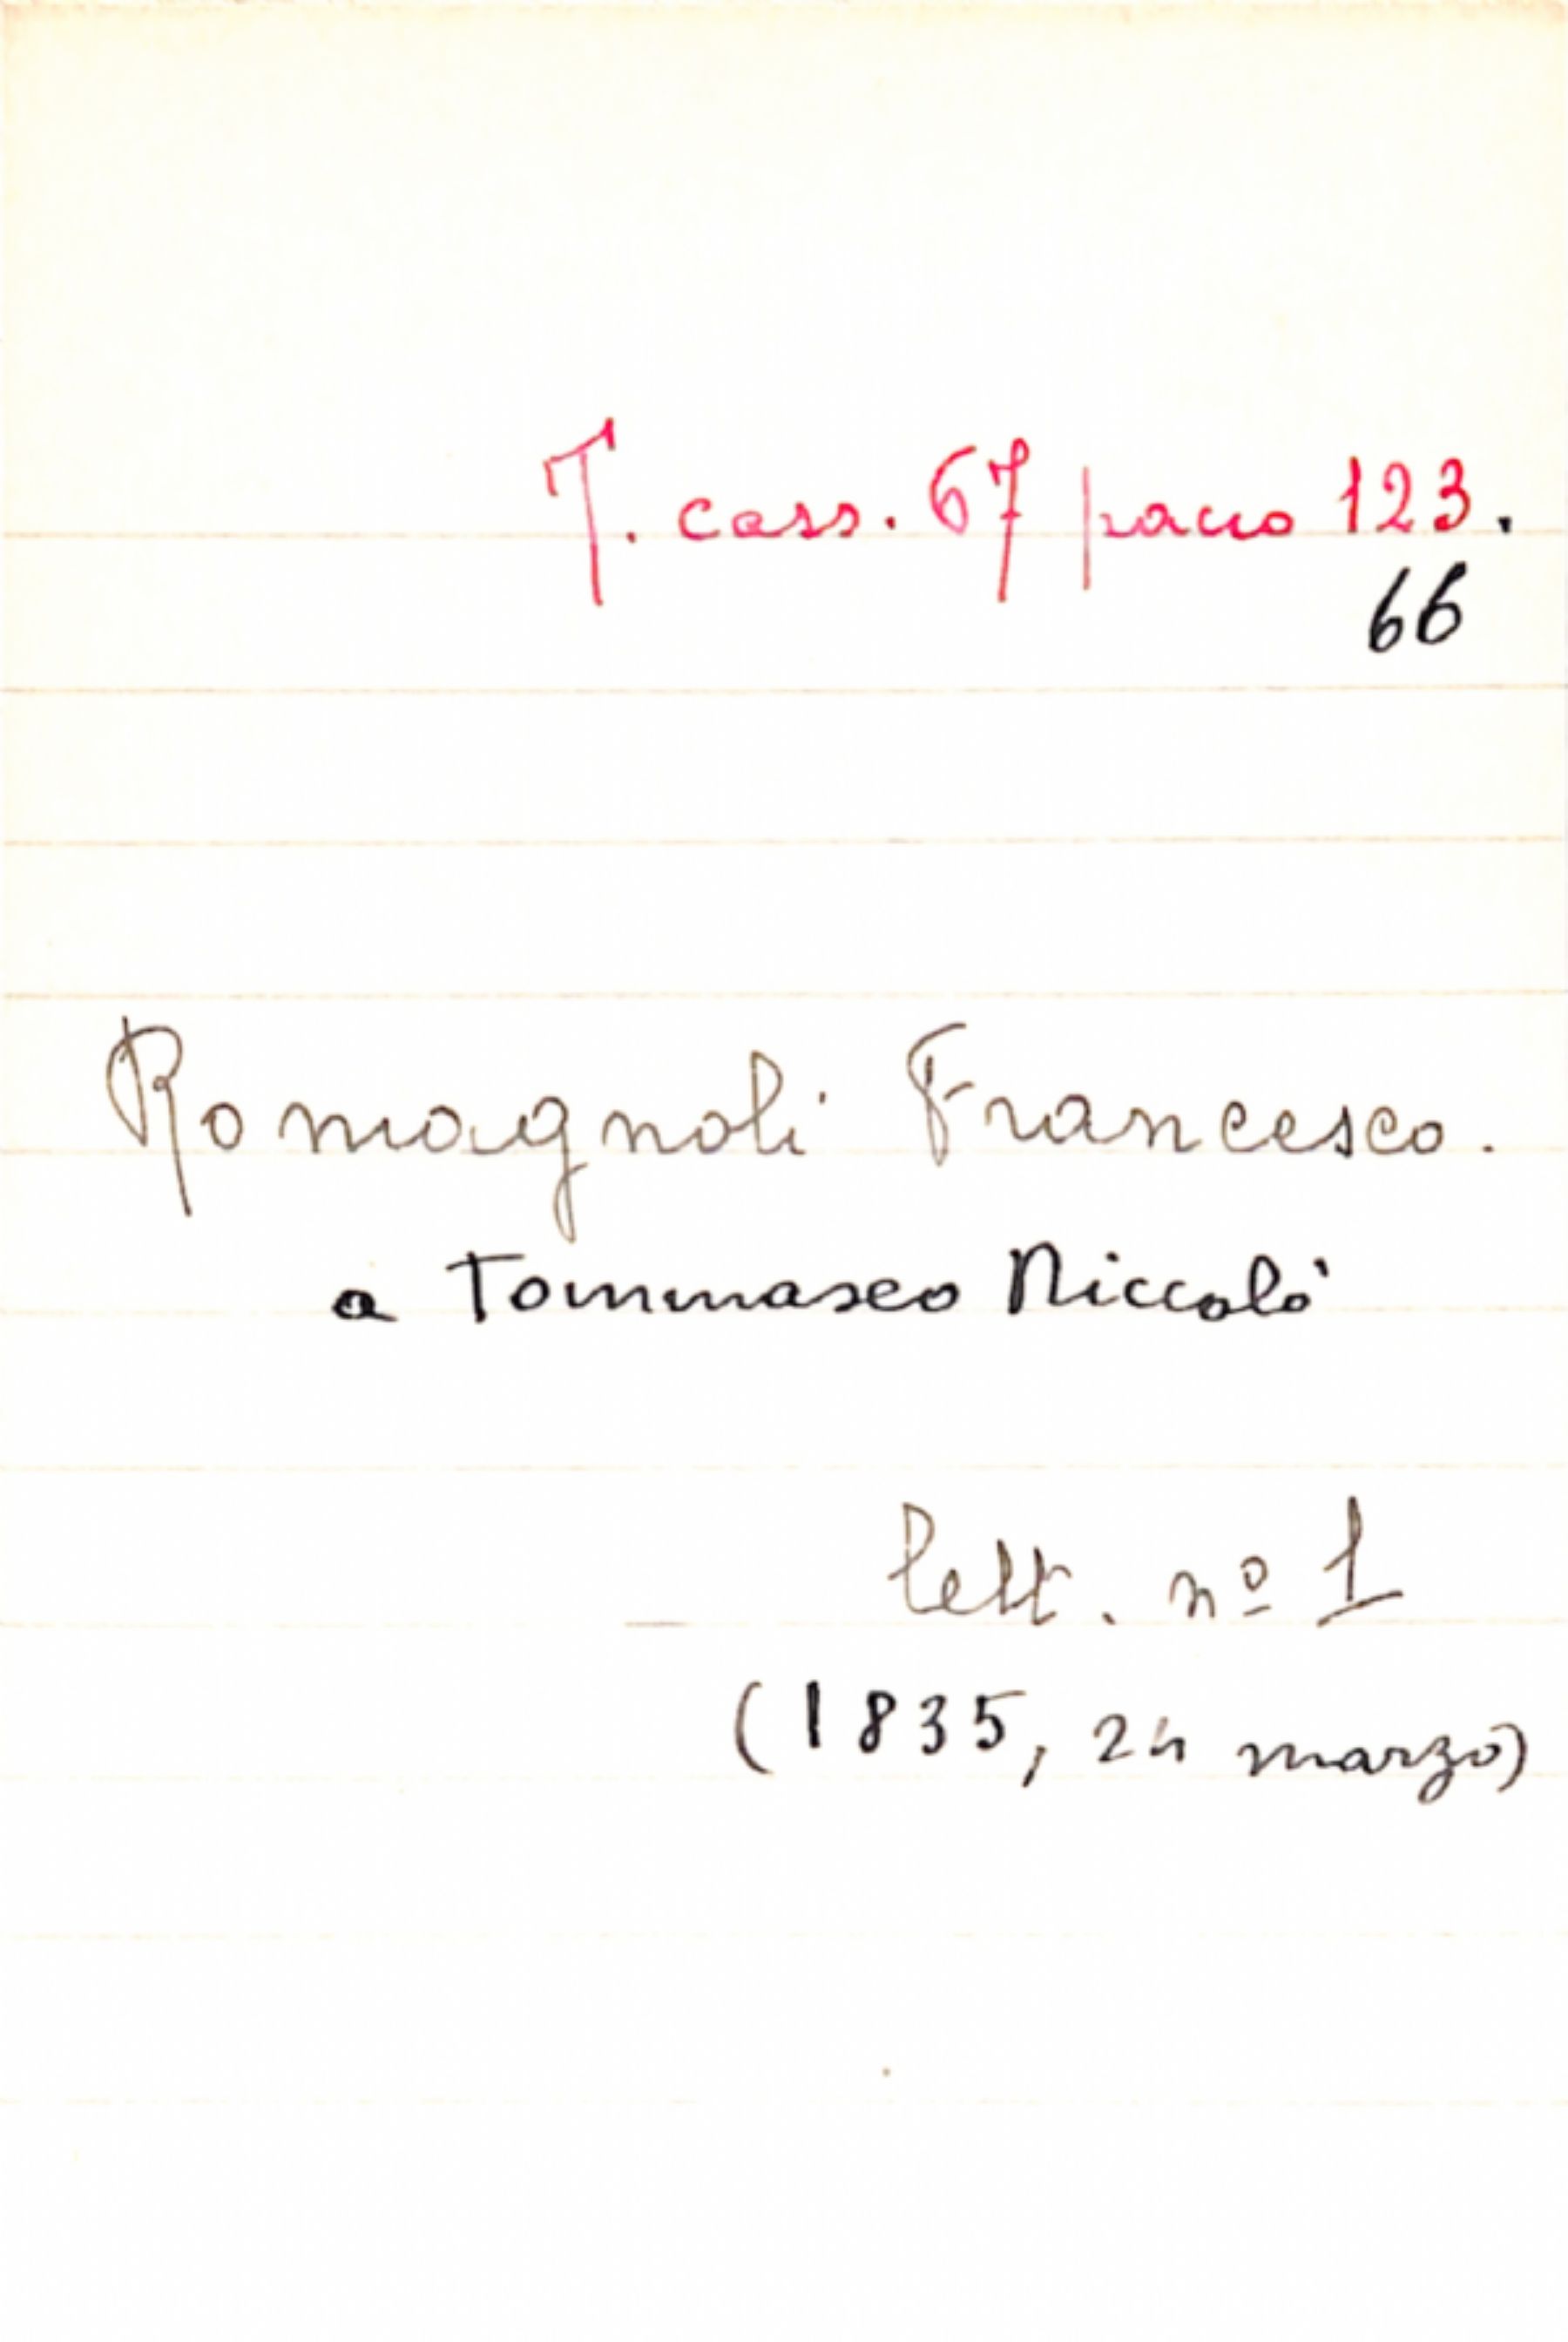 T. cass. 67 pacco 123.
66
Romagnoli Francesco.
a Tommaseo Niccolò
lett. nº 1
(1835, 24 marzo)